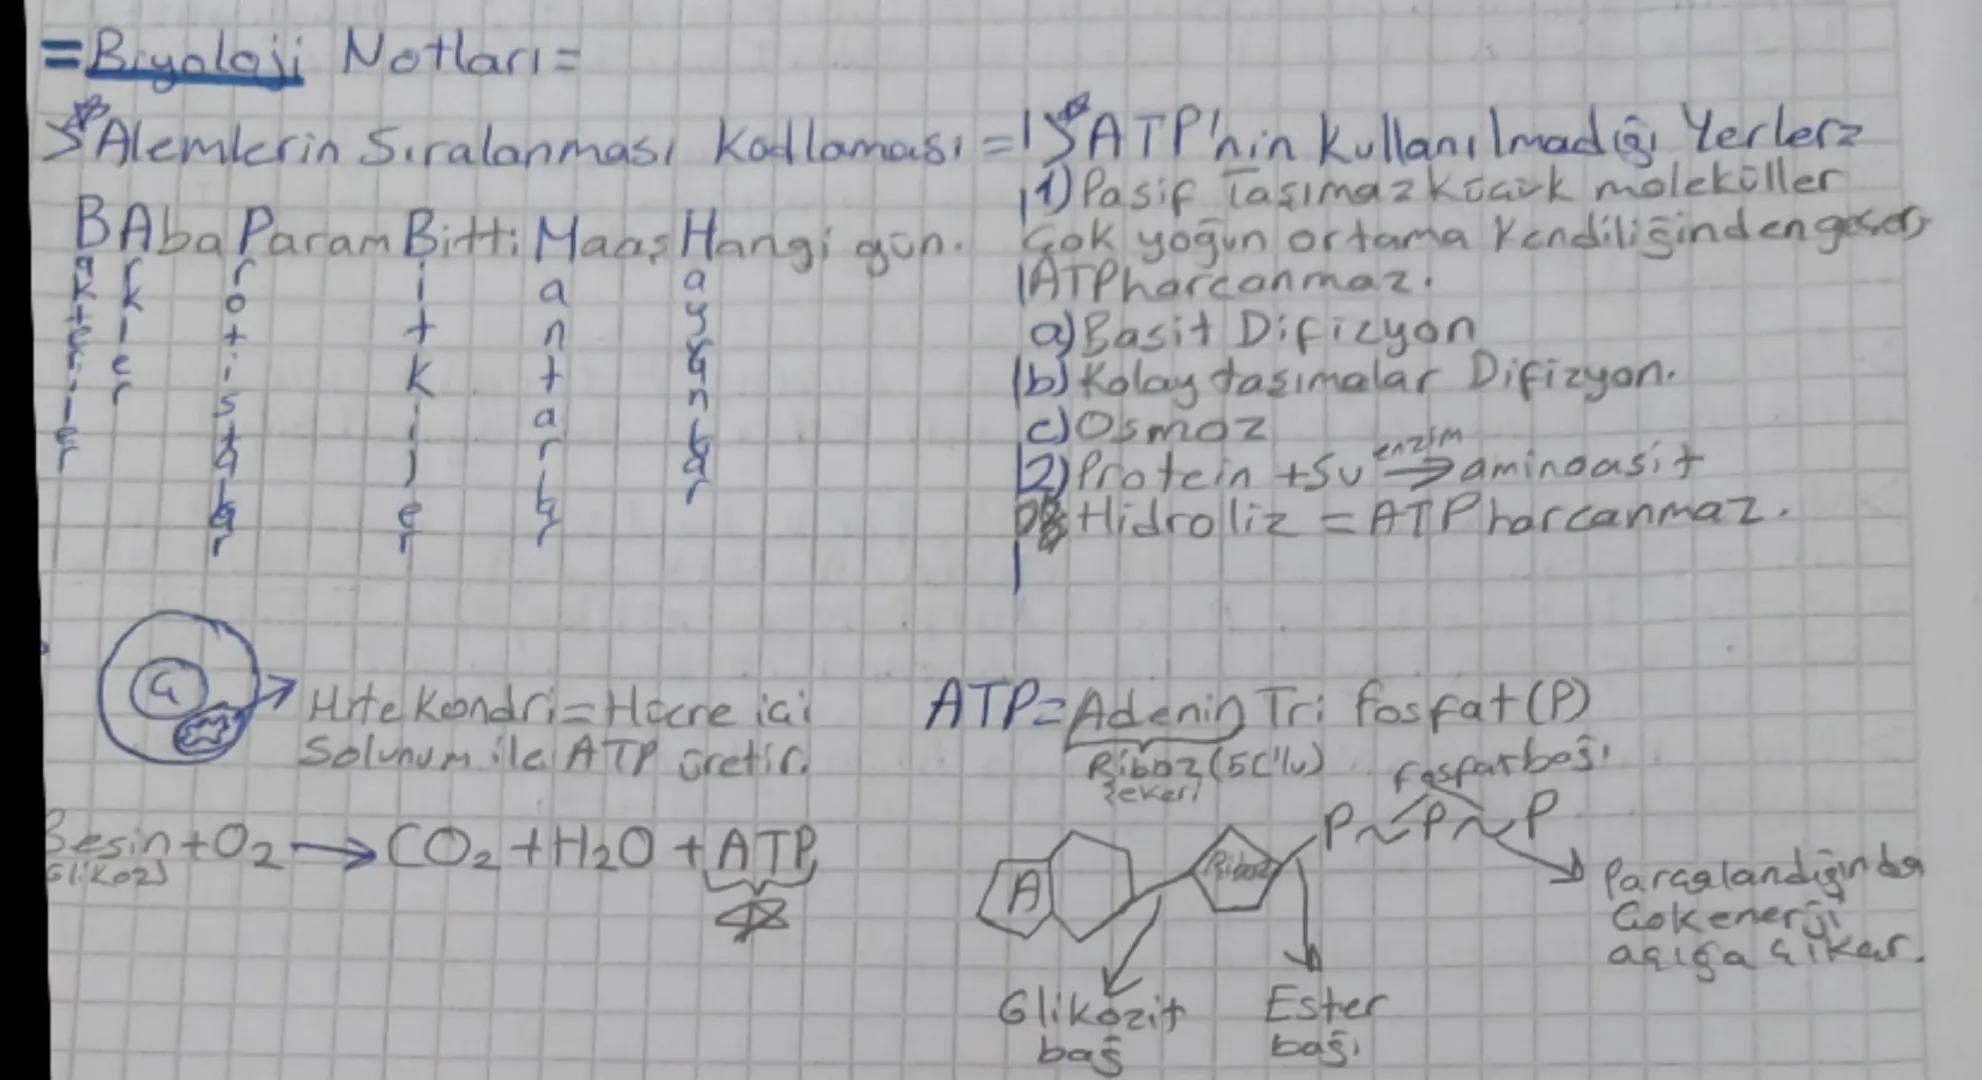 =Biyoloji Notları=
Alemlerin Sıralanması Kodlaması =
BAba Param Bitti Maaş Hangi gün.
Bakteriler
Arkler
Protistalar
Bitkiler
Mantarlar
Hayvanlar
ATP'nin kullanılmadığı Yerler=
1) Pasif Taşıma= Küçük moleküller
Çok yoğun ortama Kendiliğinden geçer,
ATP harcanmaz.
a) Basit Difizyon
b) Kolay taşımalar Difizyon.
c) Osmoz
2) Protein + Su enzim → aminoasit
Hidroliz = ATP harcanmaz.
G
Mitekondri = Hücre içi
Solunum ile ATP üretir.
Besin + O2 → CO2 + H2O + ATP
Glikoz)
ATP = Adenin Tri fosfat (P)
Riboz (5C'lu)
şekeri
fosfat bağı
P~P~P
A
Riboz
Parçalandığında
Çok enerji
açığa çıkar.
Glikozit
bağ
Ester
bağı